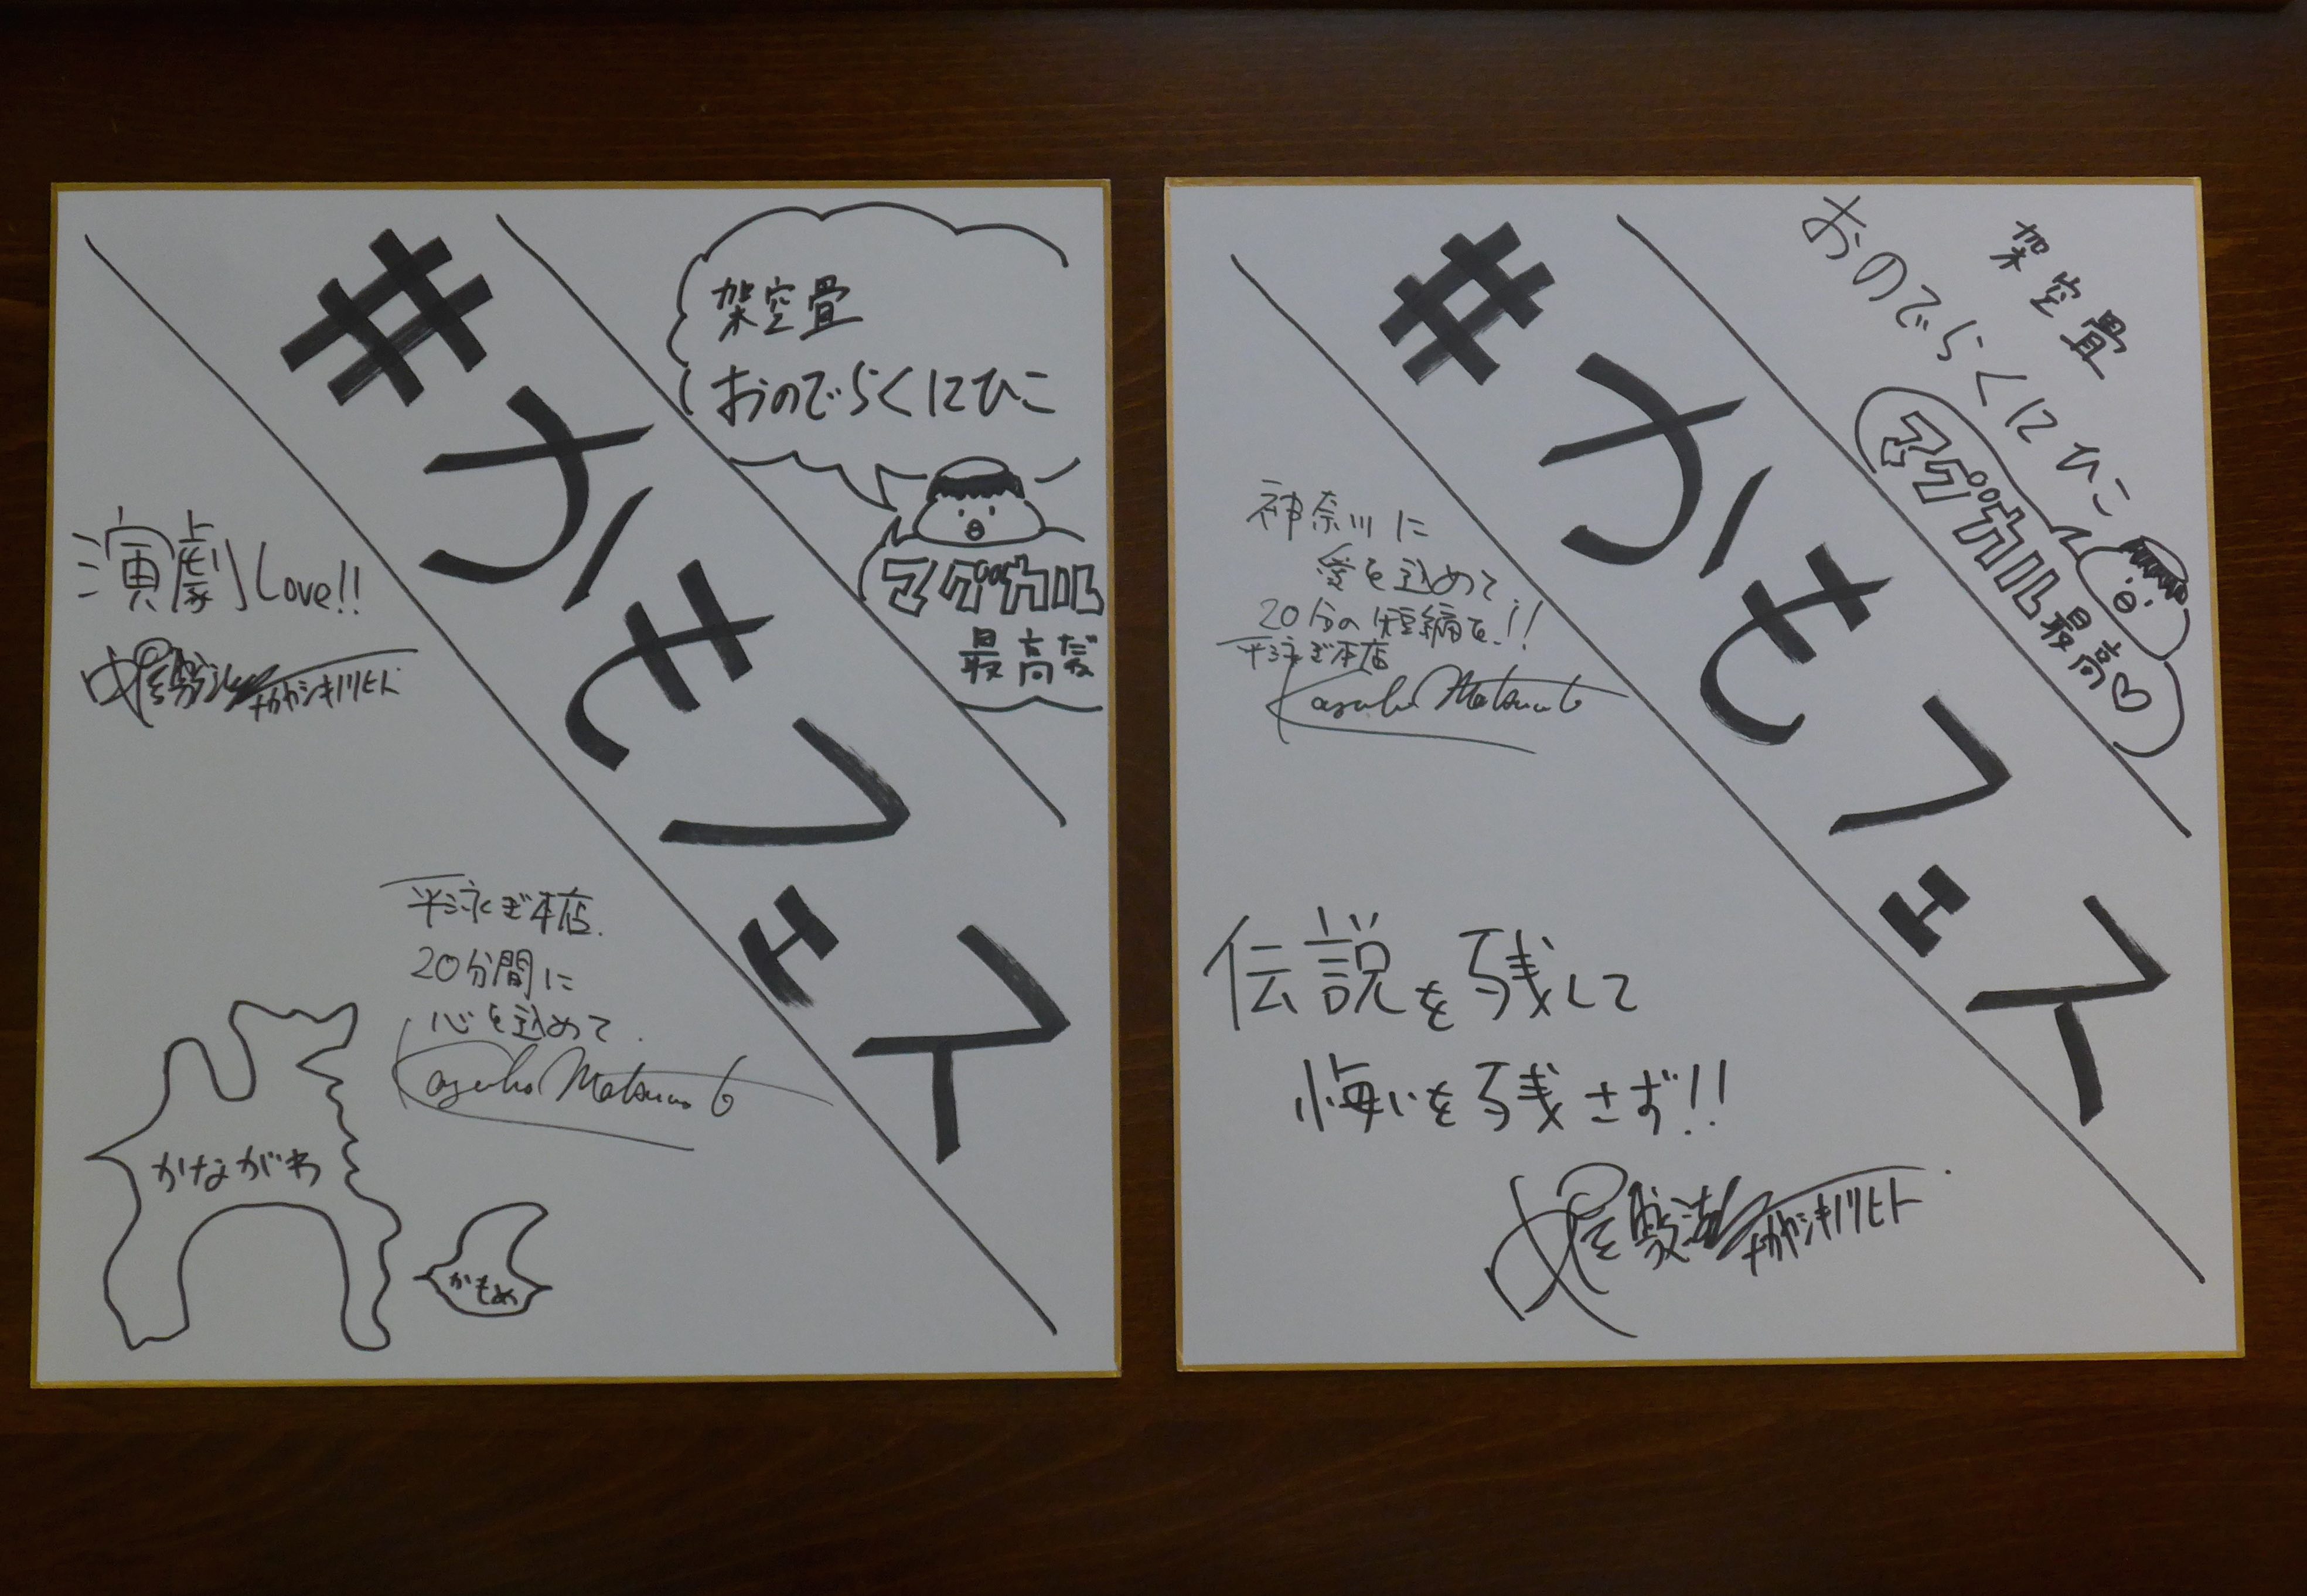 #かもフェス
架空畳
おのでらくにひこ
マグカル
最高だ
演劇Love!!
中屋敷法仁 ナカヤシキノリヒト
平泳ぎ本店.
20分間に
心を込めて.
Kazuho Matsumoto
かながわ
かもめ
#かもフェス
架空畳
おのでらくにひこ
マグカル最高♡
神奈川に
愛を込めて
20分の短編を!!
平泳ぎ本店
Kazuho Matsumoto
伝説を残して
悔いを残さず!!
中屋敷法仁 ナカヤシキノリヒト